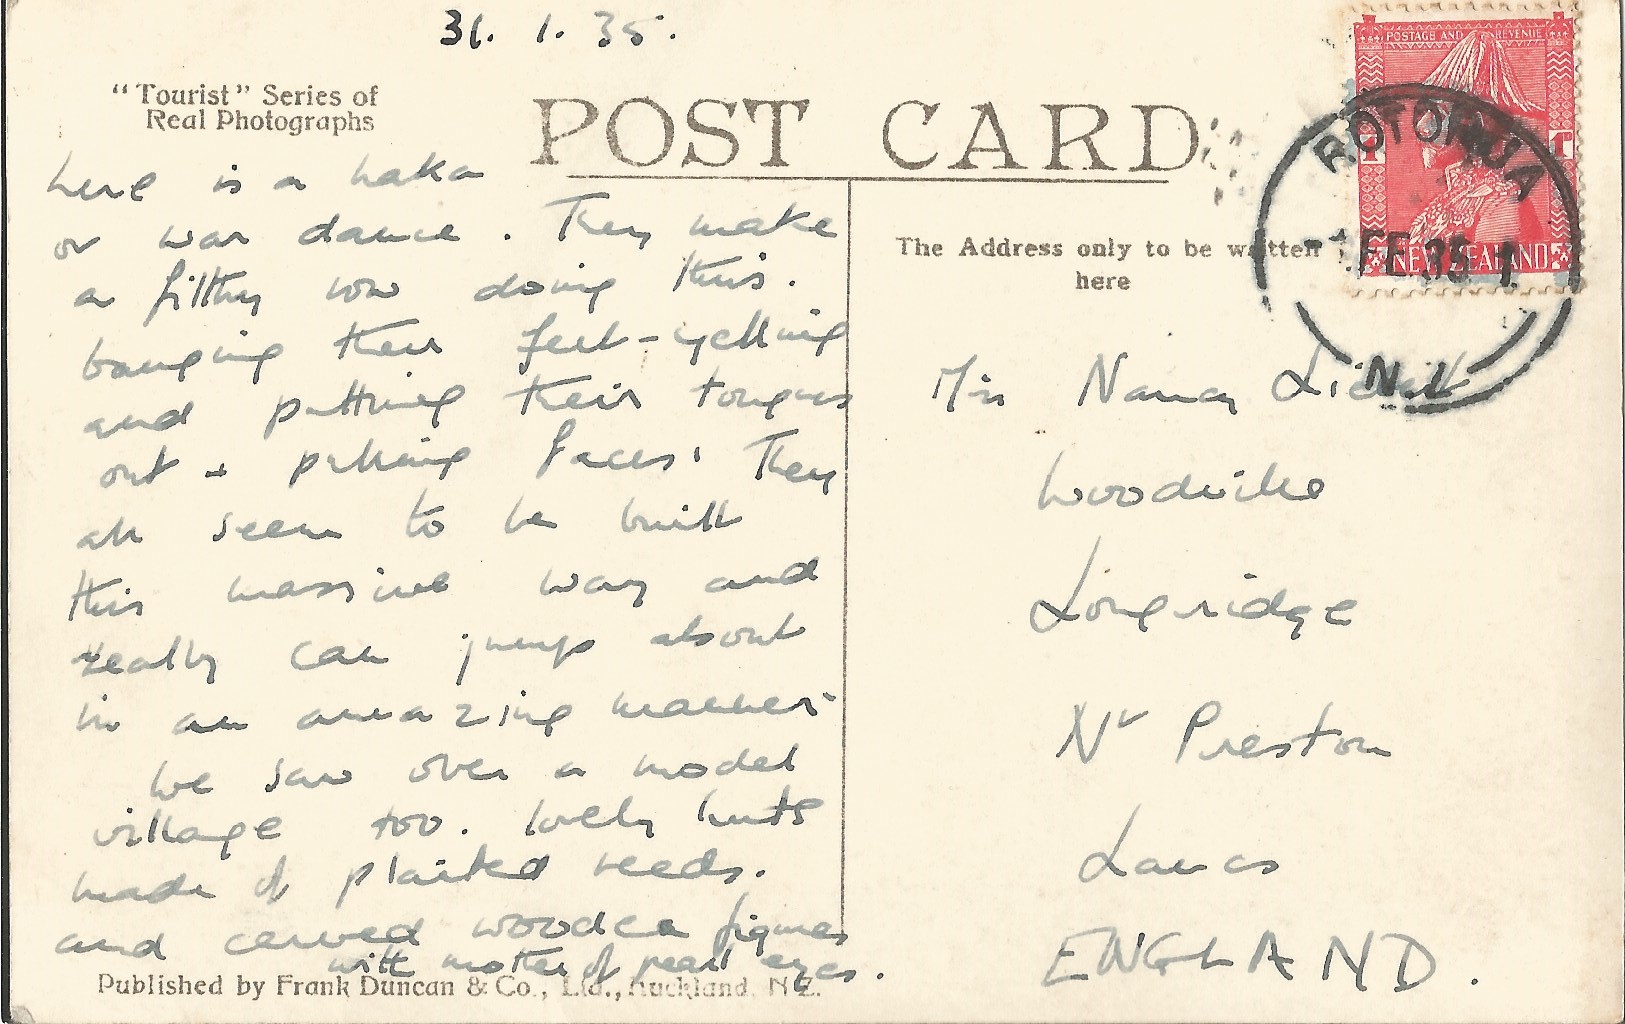 31. 1. 35.
"Tourist" Series of
Real Photographs
POST CARD
here is a haka
or war dance. They make
a filthy row doing this.
banging their feet - yelling
and putting their tongues
out + pulling faces. They
all seem to be built
this massive way and
really can jump about
in an amazing manner.
We saw over a model
village too. lovely huts
made of plaited reeds.
and carved wooden figures
with mother of pearl eyes.
Published by Frank Duncan & Co., Ltd., Auckland, N.Z.
POSTAGE AND REVENUE
NEW ZEALAND
ROTORUA
1 FE 35
N.Z.
The Address only to be written
here
Miss Nancy
Woodville
Longridge
Nr Preston
Lancs
ENGLAND.